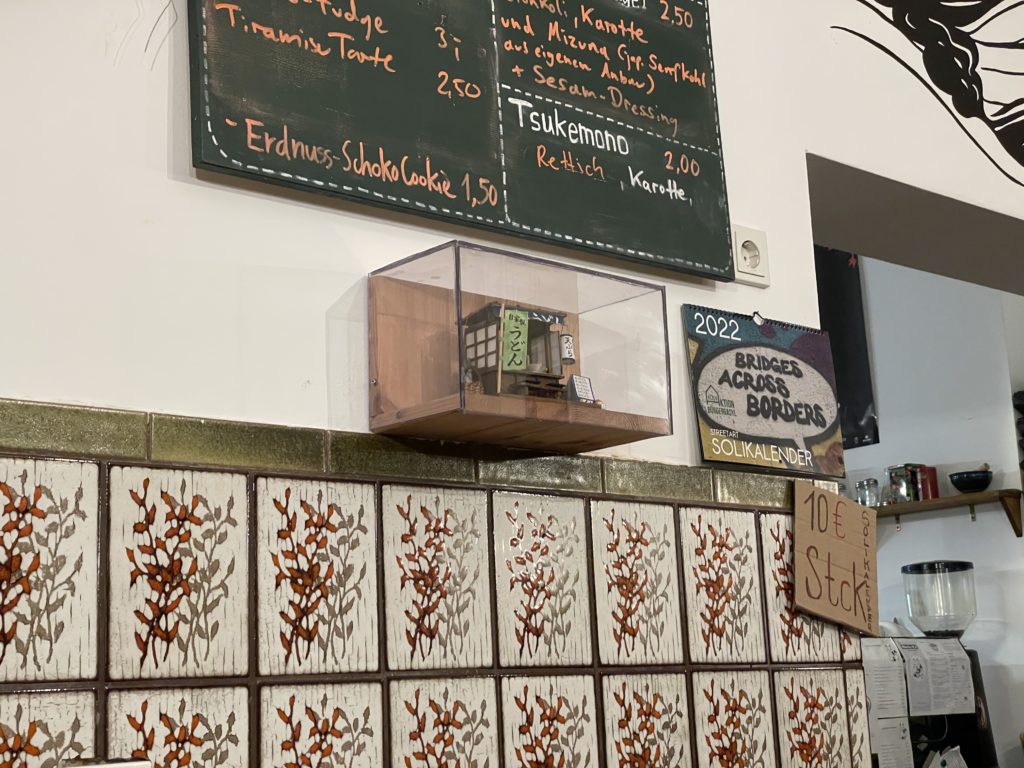 Fudge
3,-
Tiramisu Tarte
2,50
- Erdnuss-Schoko Cookie 1,50
2,50
Karotte
und Mizuna (jap. Senfkohl
aus eigenem Anbau)
+ Sesam-Dressing
Tsukemono
2,00
Rettich, Karotte,
自家製
うどん
天ぷら
2022
BRIDGES
ACROSS
BORDERS
AKTION
BÜRGERASYL
STREETART
SOLIKALENDER
10 €
Stck